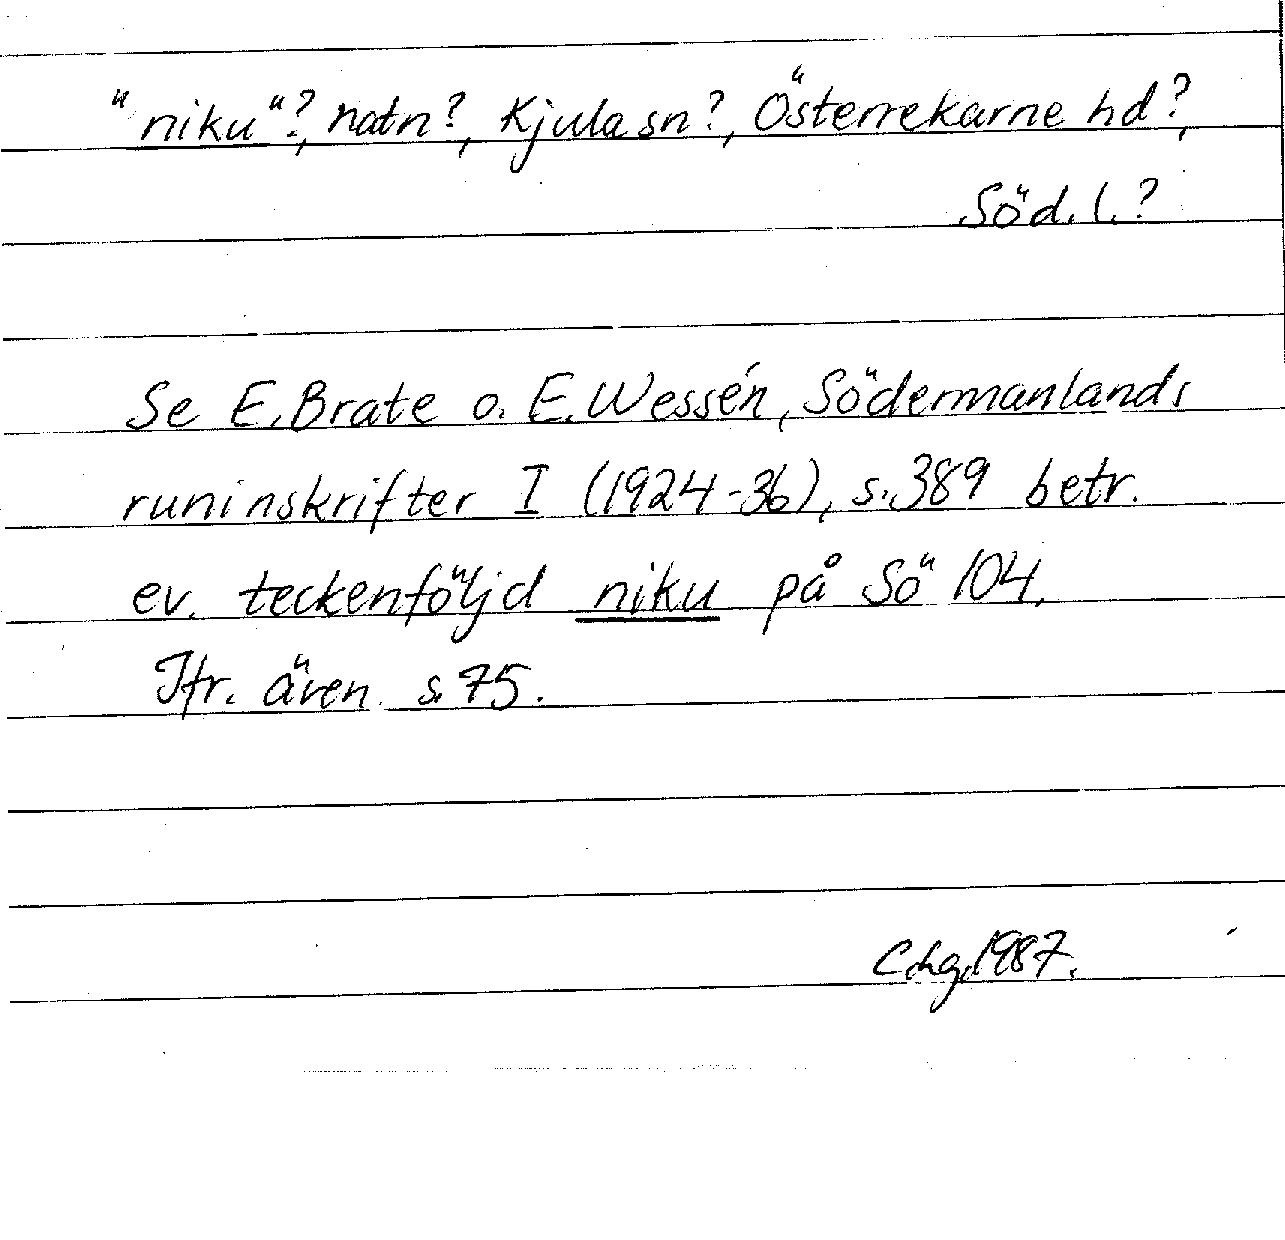 "niku"?, natn?, Kjula sn?, Österrekarne hd?,
Söd. l.?
Se E. Brate o. E. Wessén, Södermanlands
runinskrifter I (1924-36), s. 389 betr.
ev. teckenföljd niku på Sö 104.
Jfr. även s. 75.
Chg. 1987.